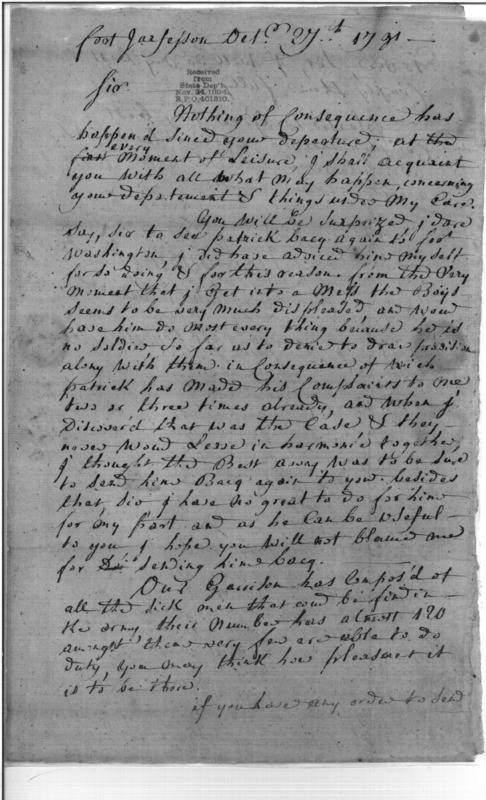 fort Jaefesson Octr 27th 1791
Received
from
State Dep't.
Nov. 24, 1894
R.P.O. 401810.
Sir
Nothing of Consequence has
happen'd since your departure; at the
first every Moment of Leisure j shall acquaint
you With all What may happen, concerning
your departement & things under My Care.
You will be surprized j dare
say, sir to see patrick bacq again to fort
Washington, j did have adviced him my self
for so doing, & for this reason. from the Very
Moment that j Get into a Mess the Boys
seems to be very much displeased and wou'd
have him do most every thing because he is
no soldier so far as to denie to draw provision
along with them. in Consequence of wich
patrick has Made his Complaints to me
two or three times already, and When j
Discover'd that was the Case & they
never Woud Leive in harmonie together,
j thought the Best away was to be sure
to send him Bacq again to you. besides
that, Sir j have no great to do for him
for my part and as he Can be usefull
to you j hope you Will not blame me
for sending him bacq.
Our Garrison has Compos'd of
all the sick men that coud be find in
the army their Number has almost 120
amongst them very few are able to do
duty, you may think how pleasant it
is to be there.
if you have any order to send